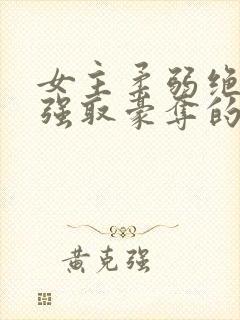 女主柔弱绝
强取豪夺的
黄克强